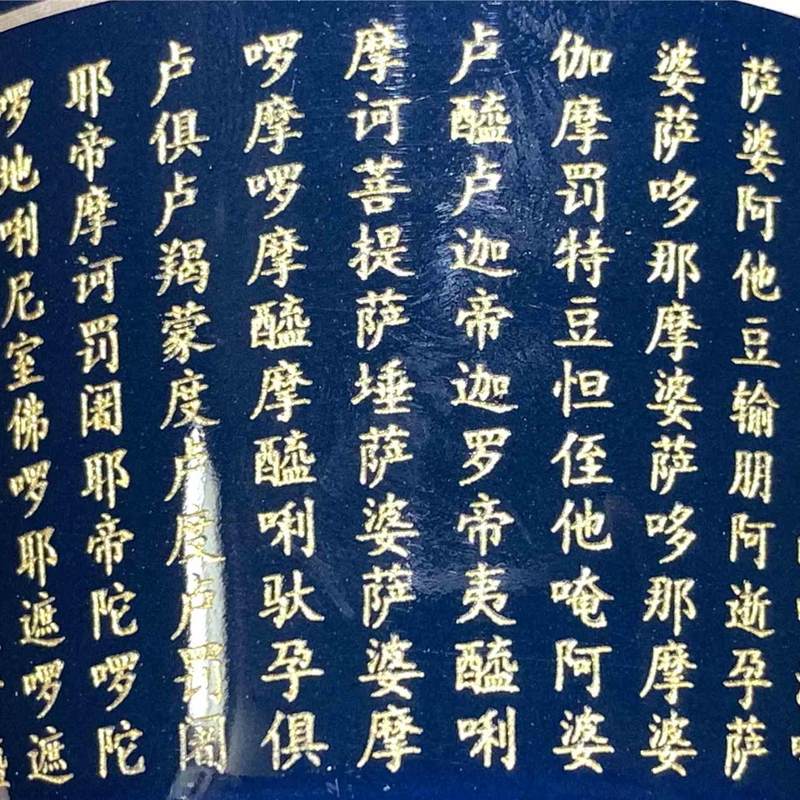 萨婆阿他豆输朋阿逝孕萨
婆萨哆那摩婆萨哆那摩婆
伽摩罚特豆怛侄他唵阿婆
卢醯卢迦帝迦罗帝夷醯唎
摩诃菩提萨埵萨婆萨婆摩
啰摩啰摩醯摩醯唎驮孕俱
卢俱卢羯蒙度卢度卢罚阇
耶帝摩诃罚阇耶帝陀啰陀
啰地唎尼室佛啰耶遮啰遮